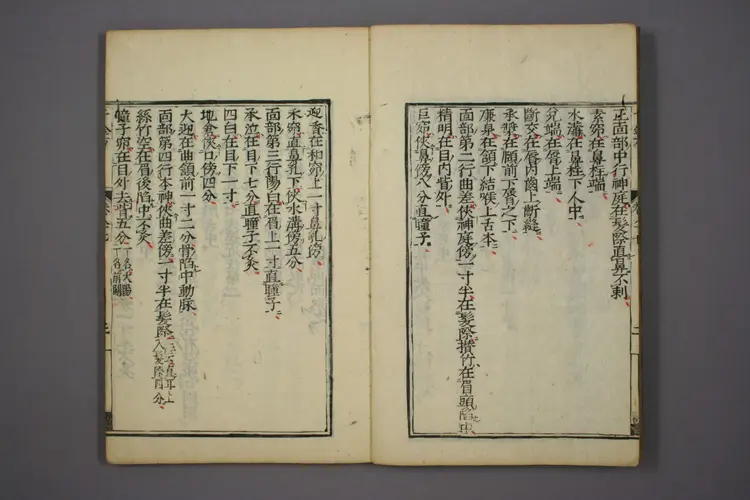 正面部中行神庭在髮際直鼻不刺
素窌在鼻柱端
水溝在鼻柱下人中
兌端在脣上端
齗交在脣內齒上齗縫
承漿在頤前下脣之下
廉泉在頷下結喉上舌本
面部第二行曲差俠神庭傍一寸半在髮際攢竹在眉頭陷中
精明在目內眥外
巨窌俠鼻傍八分直瞳子
迎香在和窌上一寸鼻孔傍
禾窌直鼻孔下俠水溝傍五分
面部第三行陽白在眉上一寸直瞳子
承泣在目下七分直瞳子不灸
四白在目下一寸
地倉俠口傍四分
大迎在曲頷前一寸二分骨陷中動脈
面部第四行本神俠曲差傍一寸半在髮際一云直耳上入髮際四分
絲竹空在眉後陷中不灸
瞳子窌在目外去眥五分一名太陽一名前關